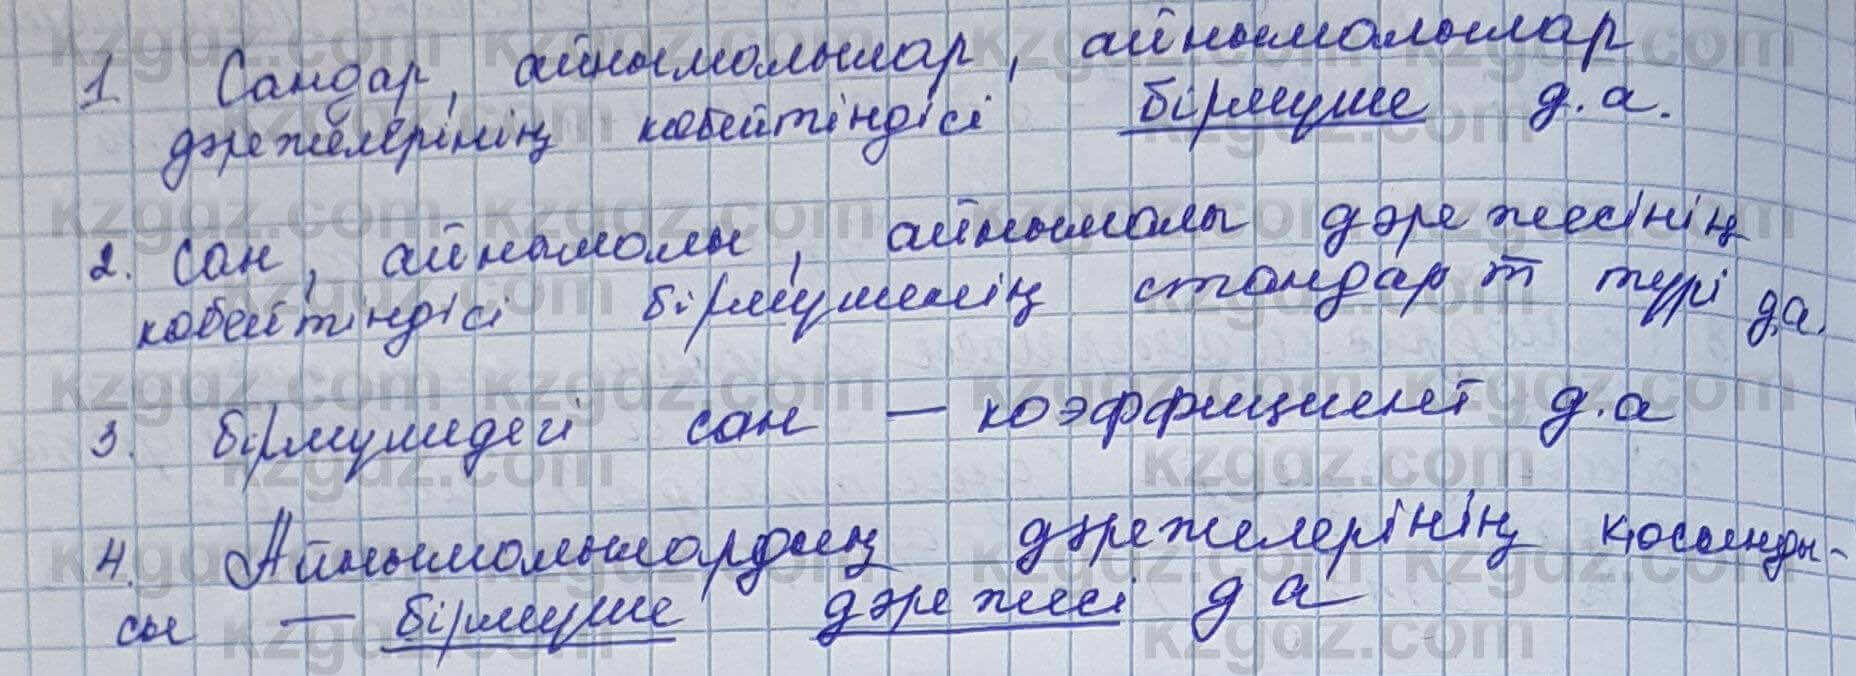 1. Сандар, айнымалылар, айнымалылар
дәрежелерінің көбейтіндісі бірмүше д.а.
2. Сан, айнымалы, айнымалы дәрежесінің
көбейтіндісі бірмүшенің стандарт түрі д.а.
3. Бірмүшедегі сан — коэффициент д.а
4. Айнымалылардың дәрежелерінің қосынды-
сы — бірмүше дәрежесі д а